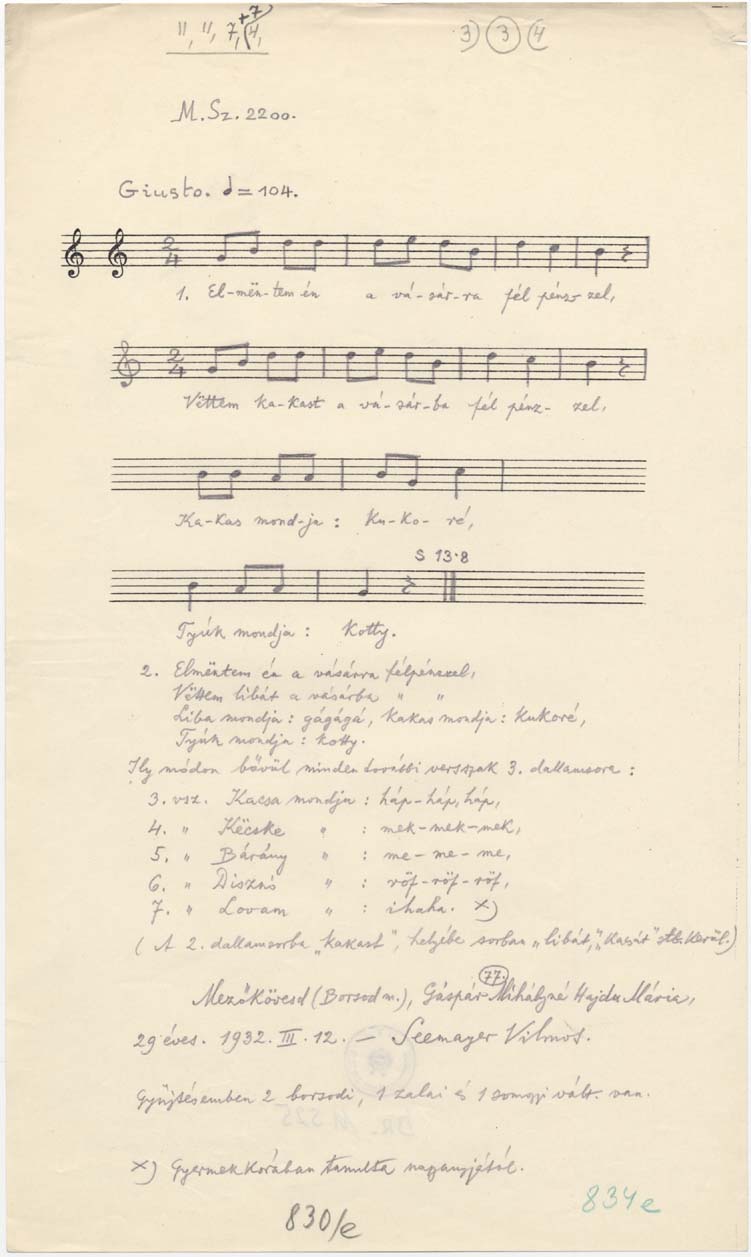 11, 11, 7, +7 (4,
3) 3 (4
M. Sz. 2200.
Giusto. = 104.
2 4
1. El-mën-tem én a vá-sár-ra fél pénz-zel,
2 4
Vëttem ka-kast a vá-sár-ba fél pénz-zel,
Ka-kas mond-ja: Ku-ko-ré,
S 13·8
Tyúk mondja: Kotty.
2. Elmëntem én a vásárra félpénzzel,
Vëttem libát a vásárba " "
Liba mondja: gágágá, Kakas mondja: Kukoré,
Tyúk mondja: Kotty.
Ily módon bővül minden további versszak 3. dallamsora:
3. vsz. Kacsa mondja: háp-háp, háp,
4. " Këcske " : mek-mek-mek,
5. " Bárány " : me-me-me,
6. " Disznó " : röf-röf-röf,
7. " Lovam " : ihaha. x)
(A 2. dallamsorba „kakast", helyébe sorban „libát," „Kacsát" stb. Kerül.)
77.
Mezőkövesd (Borsod m.), Gáspár Mihályné Hajdu Mária,
29 éves. 1932. III. 12. — Seemayer Vilmos.
Gyűjtésemben 2 borsodi, 1 zalai és 1 somogyi vált. van.
x) Gyermekkorában tanulta nagyanyjától.
830/e
834 e